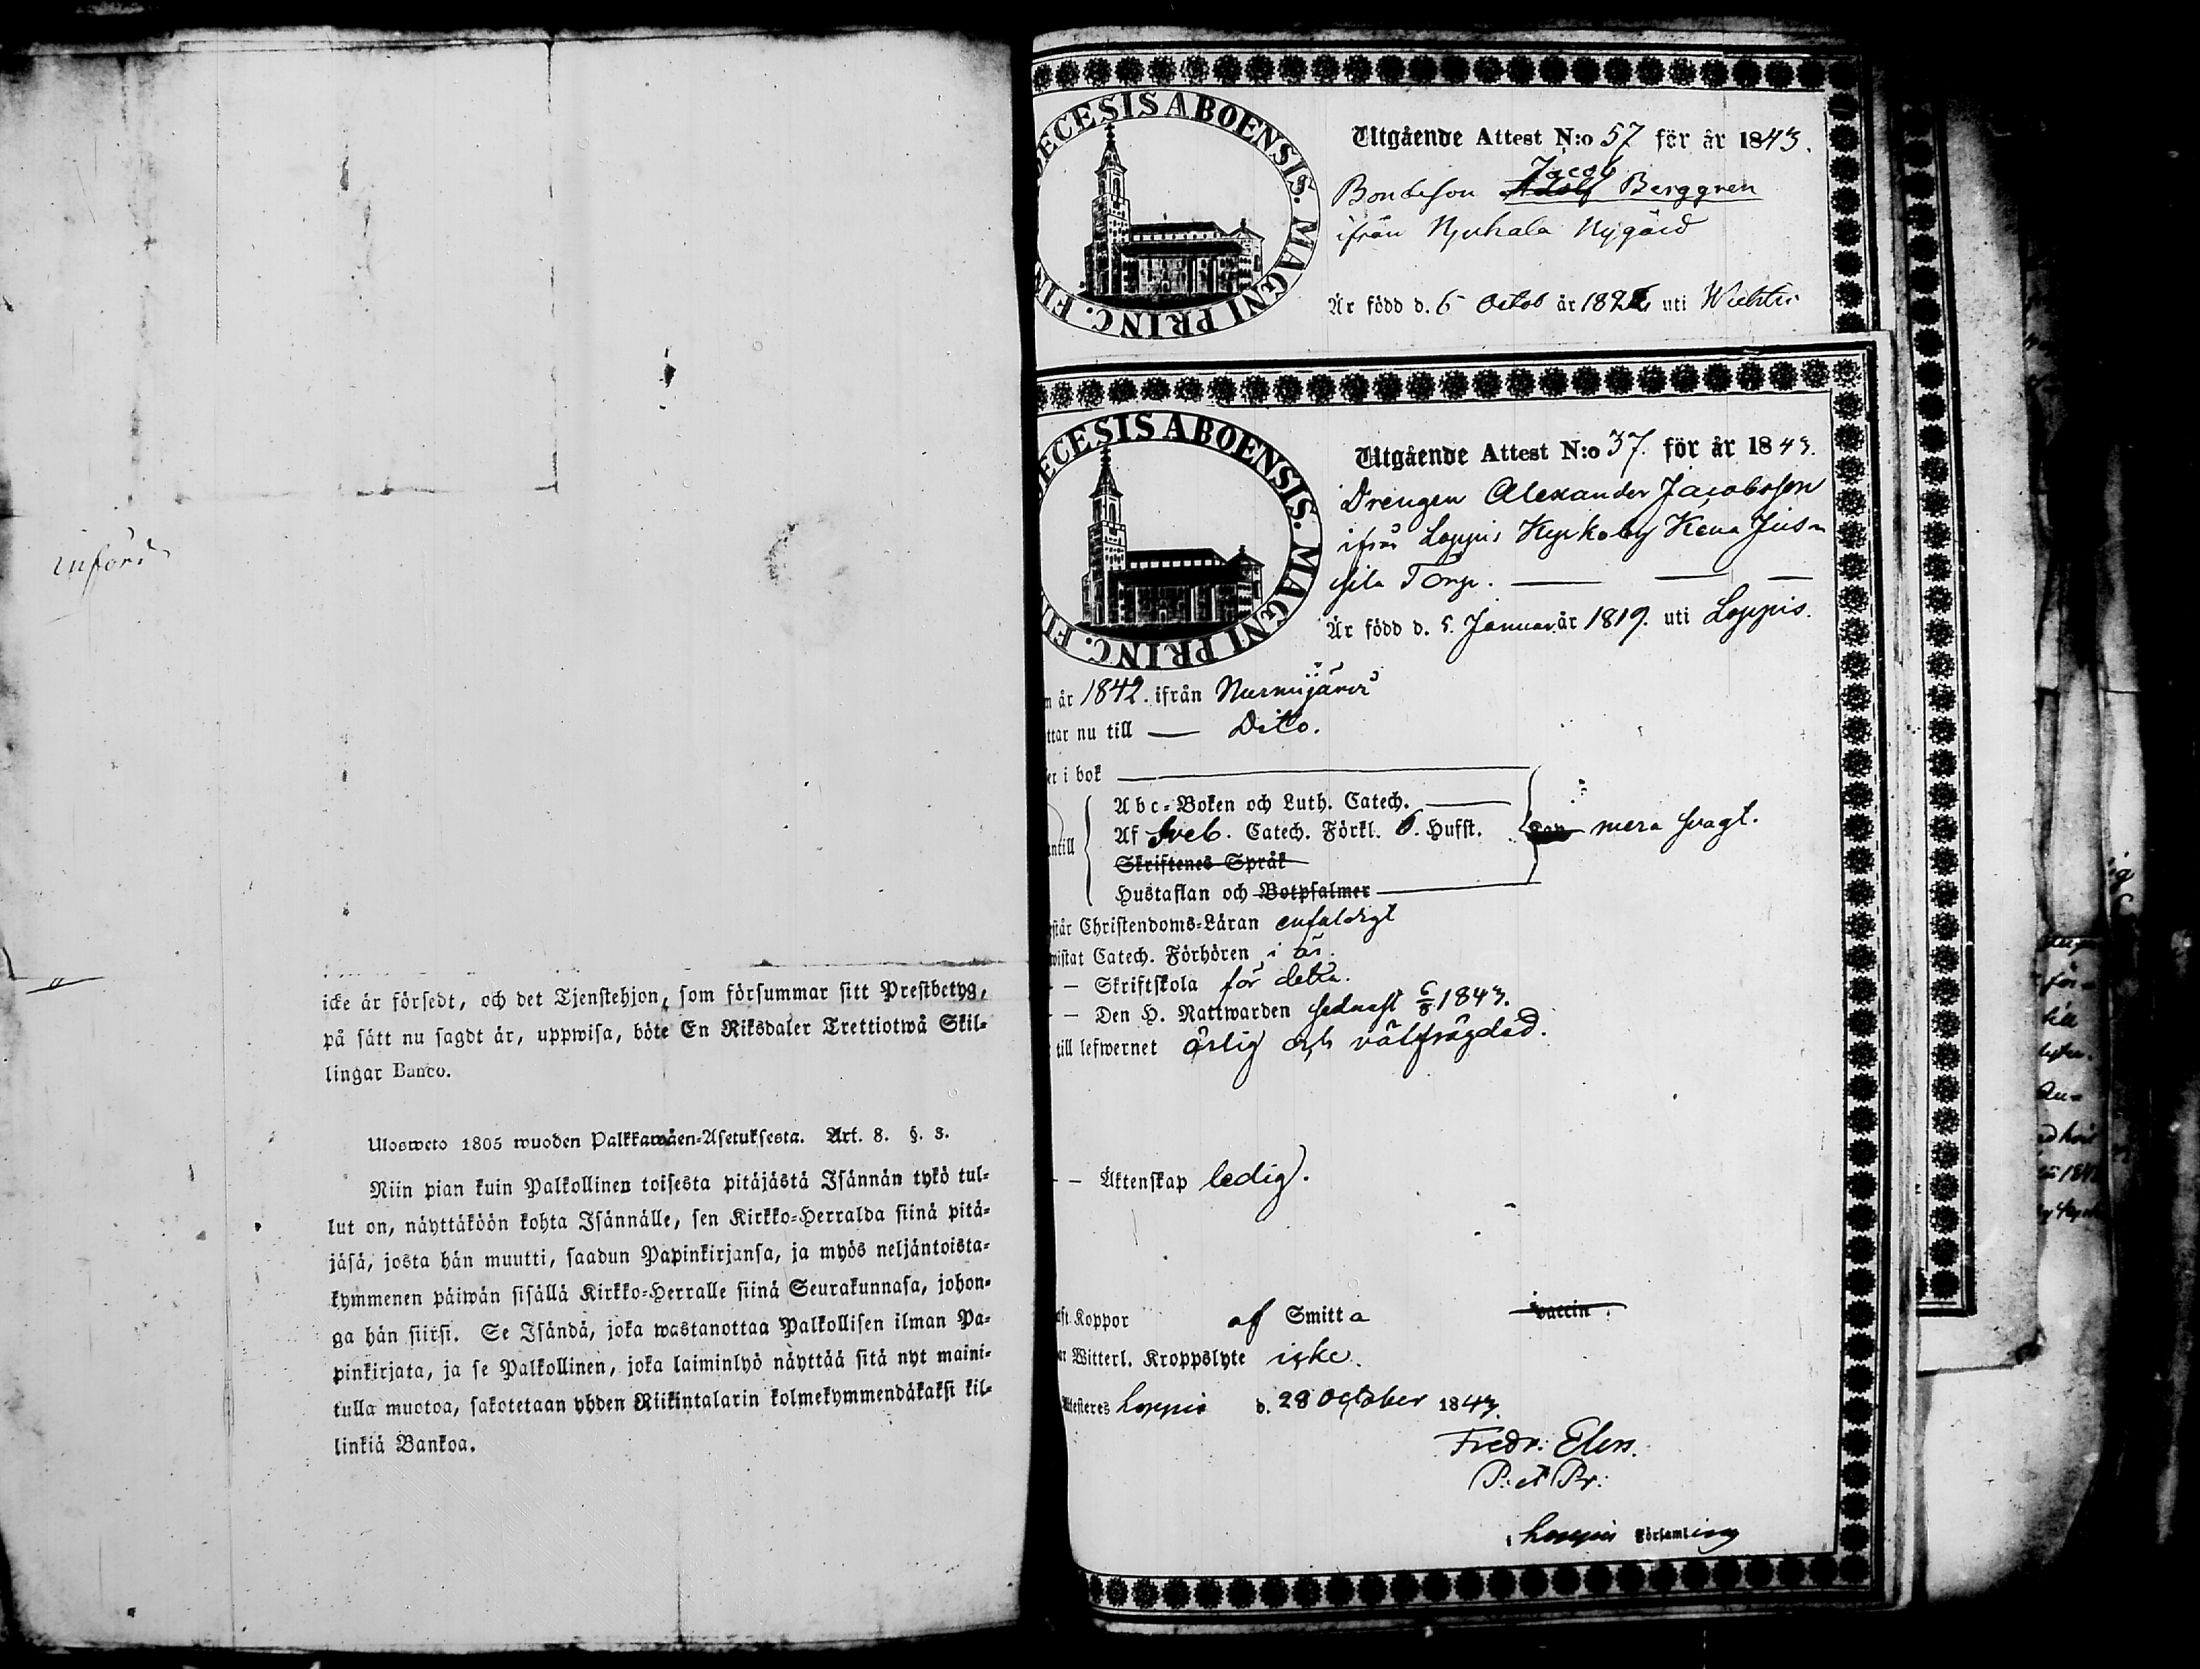 införd
icke är försedt, och det Tjenstehjon, som försummar sitt Prestbetyg,
på sätt nu sagdt är, uppwisa, böte En Riksdaler Trettiotwå Skil-
lingar Banco.
Ulosweto 1805 wuoden Palkkawäen-Asetuksesta. Art. 8. §. 3.
Niin pian kuin Palkollinen toisesta pitäjästä Isännän tykö tul-
lut on, näyttäköön kohta Isännälle, sen Kirkko-Herralda siinä pitä-
jäsä, josta hän muutti, saadun Papinkirjansa, ja myös neljäntoista-
kymmenen päiwän sisällä Kirkko-Herralle siinä Seurakunnasa, johon-
ga hän siirsi. Se Isändä, joka wastanottaa Palkollisen ilman Pa-
pinkirjata, ja se Palkollinen, joka laiminlyö näyttää sitä nyt maini-
tulla muotoa, sakotetaan yhden Riikintalarin kolmekymmendäkaksi kil-
linkiä Bankoa.
ECESIS ABOENSIS. MAGNI PRINC. FI
Utgående Attest N:o 57 för år 1843.
Jacob
Bondeson Adolf Berggren
ifrån Nygård
Är född d. 6 Octob år 182 uti Wichtis
ECESIS ABOENSIS. MAGNI PRINC. FI
Utgående Attest N:o 37. för år 1843.
Drengen Alexander Jacobsson
ifrån Loppis Kyrkoby
Torp.
Är född d. 5. Januar. år 1819. uti Loppis.
n år 1842. ifrån Nurmijärvi
ttar nu till — Dito.
er i bok
Abc-Boken och Luth. Catech.
Af Sveb. Catech. Förkl. 6. Hufst. mera svagt.
ntill
Skriftenes Språk
Hustaflan och Botpsalmer
står Christendoms-Läran enfaldigt
wistat Catech. Förhören i år.
— Skriftskola för detta.
— Den H. Nattwarden sednast 6/8 1843.
till lefwernet ärlig och välfrägdad.
— Äktenskap ledig.
aft Koppor af Smitta vaccin.
Witterl. Kroppslyte icke.
Attesteres Loppis d. 28 October 1843.
Fredr. Elers.
P. et Pr:
i Loppis Församling